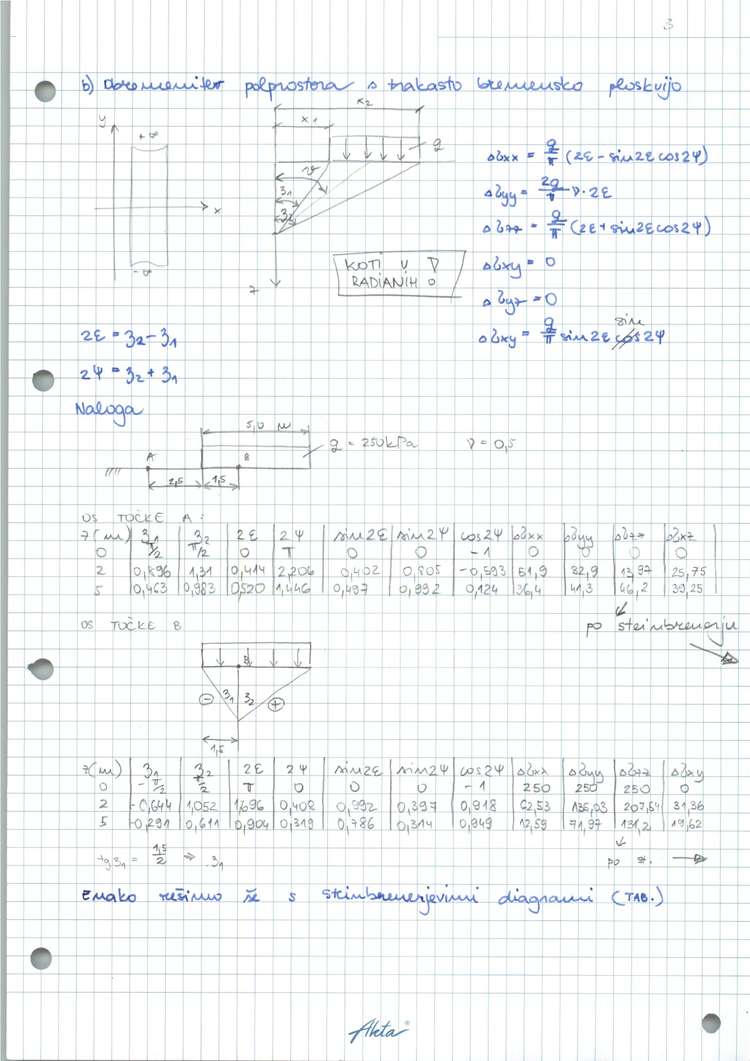 3
b) Obremenitev polprostora s trakasto bremensko ploskvijo
x2
x1
y
+∞
x
-∞
q
ϑ
31
32
z
KOTI V ∇
RADIANIH o
Δσxx = q/π (2ε - sin2ε cos2ψ)
Δσyy = 2q/π ν·2ε
Δσzz = q/π (2ε + sin2ε cos2ψ)
Δσxy = 0
Δσyz = 0
sin
Δσxy = q/π sin2ε cos 2ψ
2ε = 32 - 31
2ψ = 32 + 31
Naloga
5,0 m
q = 250kPa ν = 0,5
A B
2,5 1,5
OS TOČKE A:
z(m) 31 32 2ε 2ψ sin2ε sin2ψ cos2ψ Δσxx Δσyy Δσzz Δσxz
0 π/2 π/2 0 π 0 0 -1 0 0 0 0
2 0,896 1,31 0,414 2,206 0,402 0,805 -0,593 51,9 32,9 13,97 25,75
5 0,463 0,983 0,520 1,446 0,497 0,992 0,124 36,4 41,3 46,2 39,25
po steinbrenerju
OS TOČKE B
B
⊖ 31 32 ⊕
1,5
z(m) 31 32 2ε 2ψ sin2ε sin2ψ cos2ψ Δσxx Δσyy Δσzz Δσxy
0 -π/2 π/2 π 0 0 0 -1 250 250 250 0
2 -0,644 1,052 1,696 0,408 0,992 0,397 0,918 62,53 135,03 207,54 31,36
5 -0,291 0,611 0,904 0,319 0,786 0,314 0,949 12,59 71,97 131,2 19,62
tg31 = 1,5/2 ⇒ 31
po st.
Enako rešimo še s steinbrenerjevimi diagrami (TAB.)
Akta